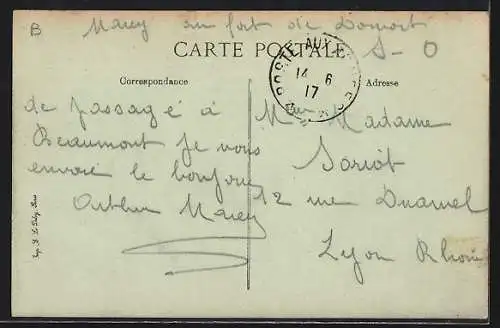 B
Marey au fort de Domont
S-O
CARTE POSTALE
POSTE AUX
14 6
17
Correspondance
Adresse
de passage à
Beaumont je vous
envoie le bonjour
Arthur Marey
Madame
Soriot
12 rue Duamel
Lyon Rhône